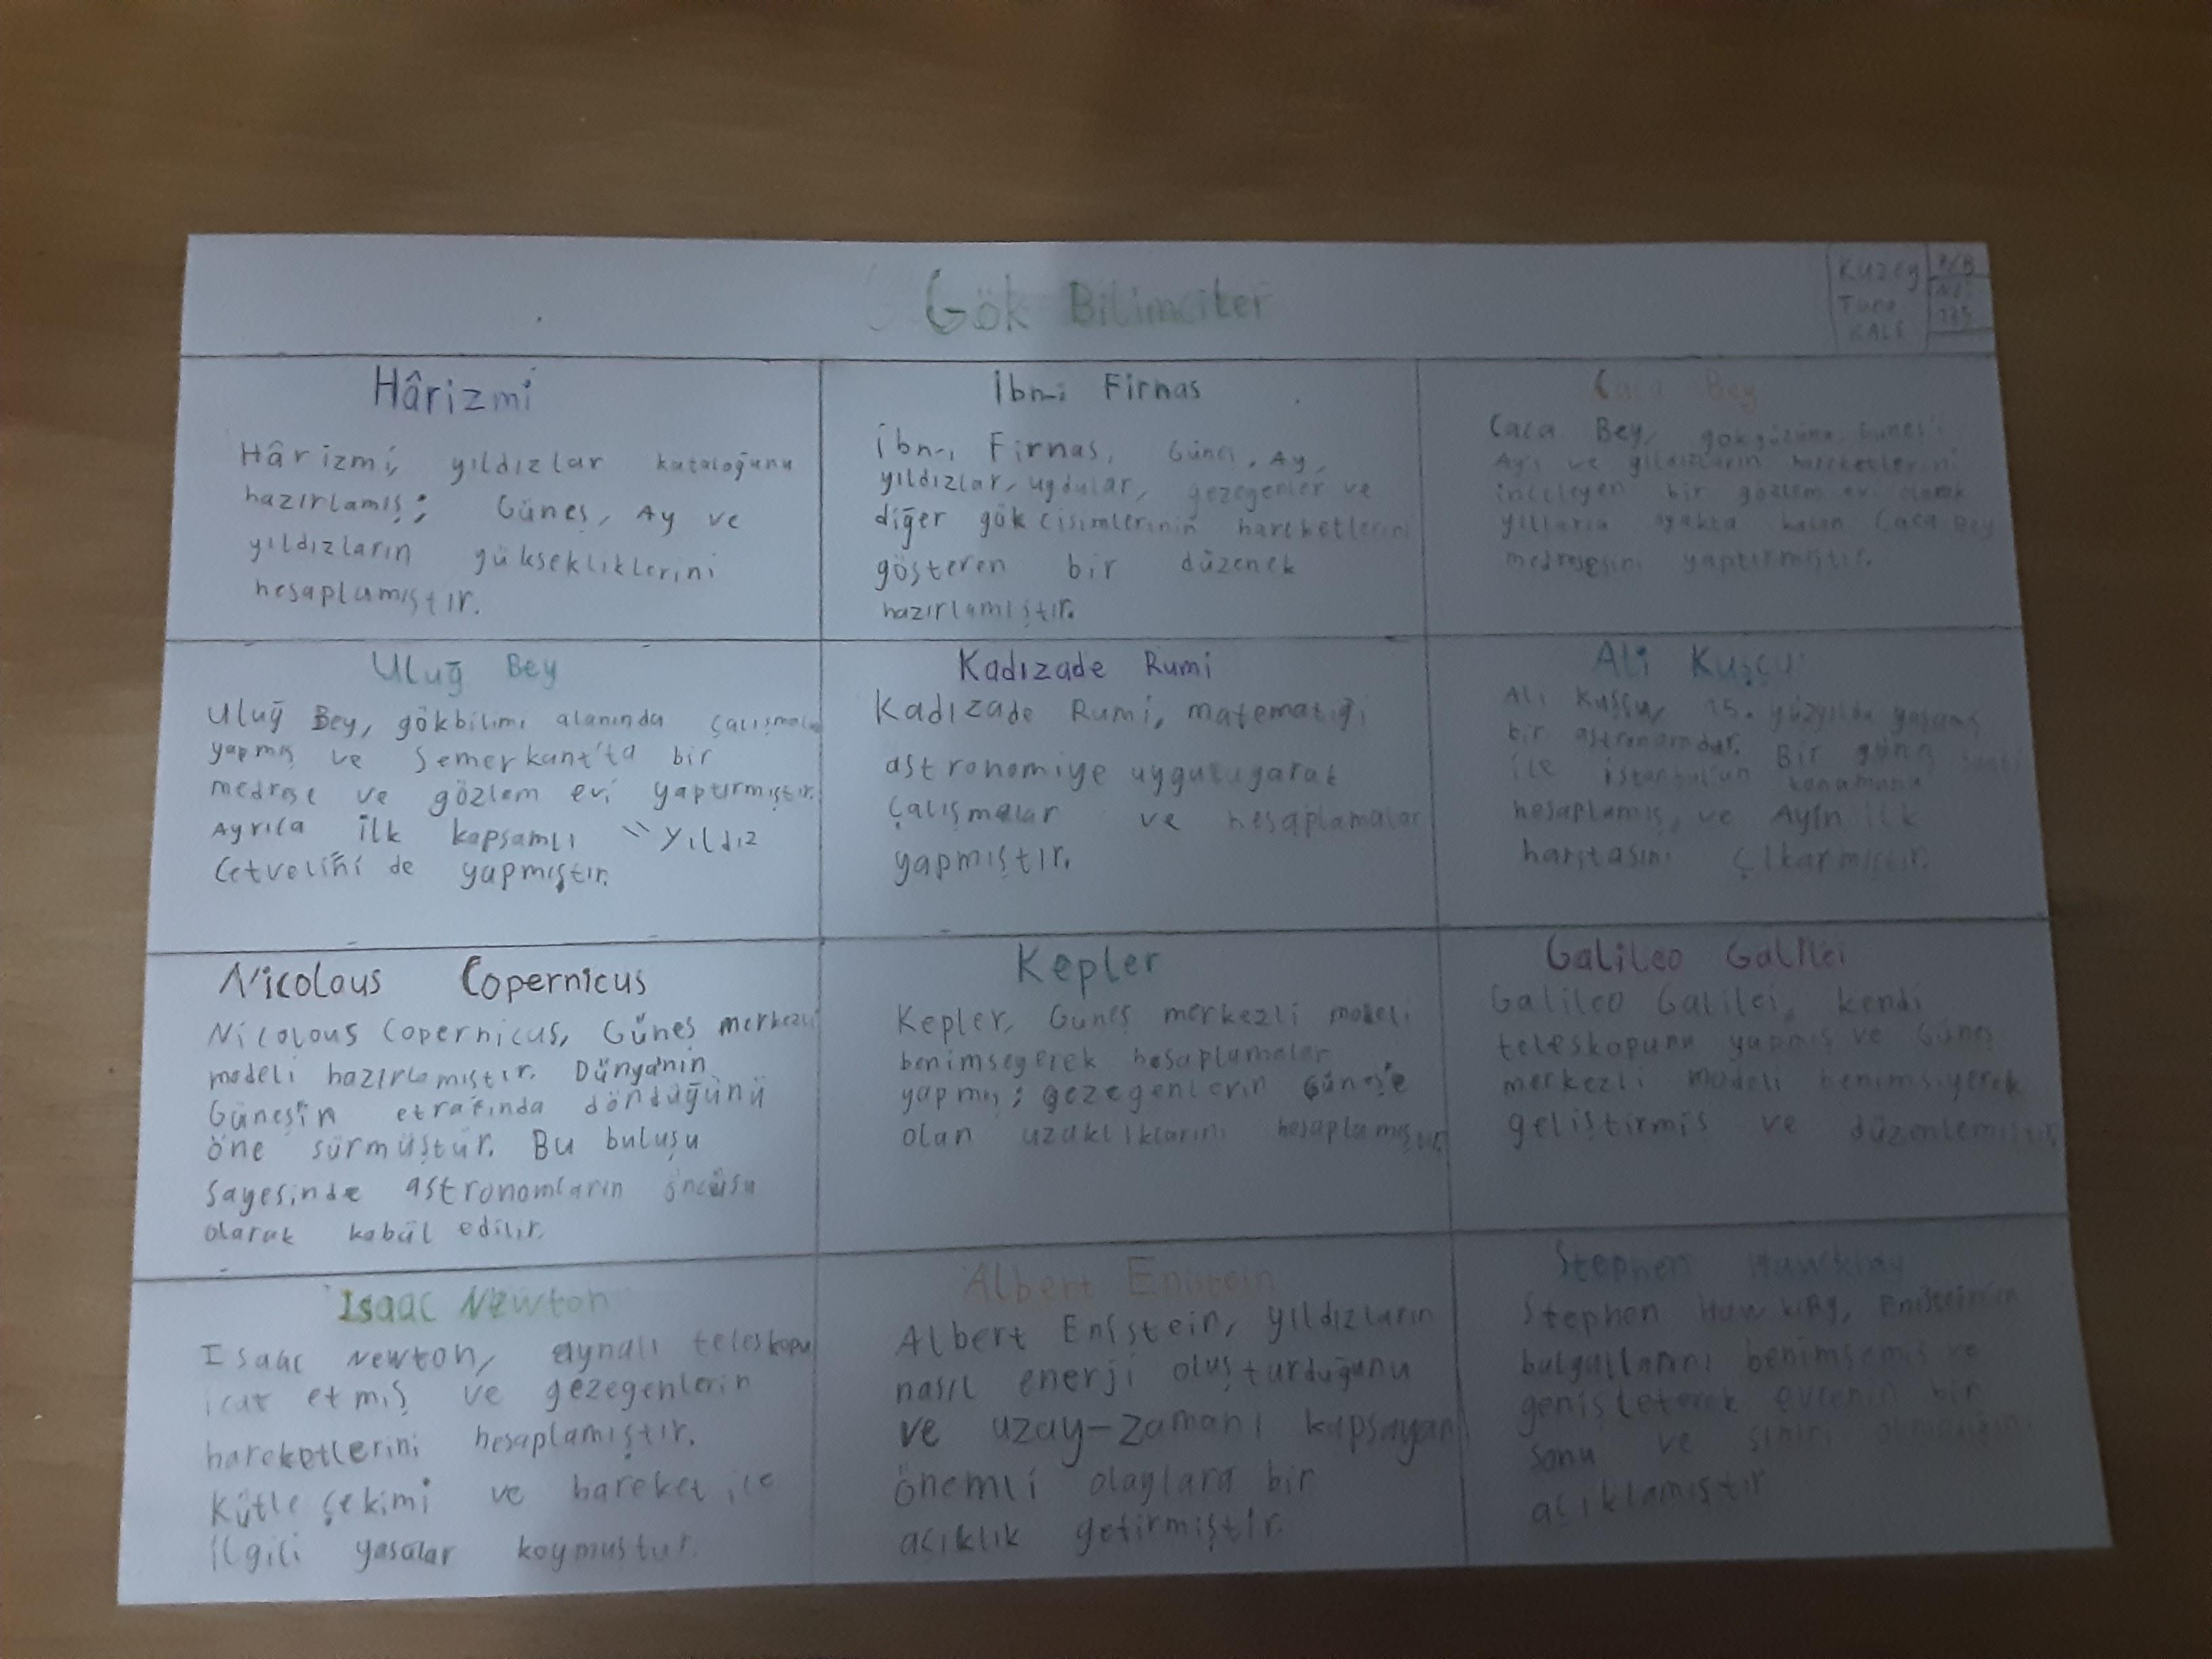 Gök Bilimciler
Kuzey
Tuna
KALE
Hârizmi
Hârizmi, yıldızlar kataloğunu
hazırlamış; Güneş, Ay ve
yıldızların yüksekliklerini
hesaplamıştır.
İbn-i Firnas
İbn-i Firnas, Güneş, Ay,
yıldızlar, uydular, gezegenler ve
diğer gök cisimlerinin hareketlerini
gösteren bir düzenek
hazırlamıştır.
Caca Bey
Caca Bey, gökyüzünü, Güneş'i
Ayı ve yıldızların hareketlerini
inceleyen bir gözlem evi olarak
yıllarca ayakta kalan Caca Bey
medresesini yaptırmıştır.
Uluğ Bey
Uluğ Bey, gökbilimi alanında
yapmış ve Semerkant'ta bir
medrese ve gözlem evi yaptırmıştır.
Ayrıca ilk kapsamlı "Yıldız
Cetvelini de yapmıştır.
Kadızade Rumi
Kadızade Rumi, matematiği
astronomiye uygulayarak
çalışmalar ve hesaplamalar
yapmıştır.
Ali Kuşçu
Ali Kuşçu, 15. yüzyılda yaşamış
bir astronomdur. Bir güneş saati
ile İstanbulun konumunu
hesaplamış, ve Ayın ilk
haritasını çıkarmıştır.
Nicolaus Copernicus
Nicolous Copernicus, Güneş merkezli
modeli hazırlamıştır. Dünyanın
Güneşin etrafında döndüğünü
öne sürmüştür. Bu buluşu
sayesinde astronomların öncüsü
olarak kabül edilir.
Kepler
Kepler, Güneş merkezli modeli
benimseyerek hesaplamalar
yapmış; gezegenlerin Güneşe
olan uzaklıklarını hesaplamıştır
Galileo Galilei
Galileo Galilei, kendi
teleskopunu yapmış ve Güneş
merkezli modeli benimsiyerek
geliştirmiş ve düzenlemiştir
Isaac Newton
Isaac Newton, aynalı teleskopu
icat etmiş ve gezegenlerin
hareketlerini hesaplamıştır.
Kütle çekimi ve hareket ile
ilgili yasalar koymuştur.
Albert Enistein
Albert Enistein, yıldızların
nasıl enerji oluşturduğunu
ve uzay-zamanı kapsayan
önemli olaylara bir
açıklık getirmiştir.
Stephen Hawking
Stephen Hawking, Enisteinin
bulgularını benimsemiş ve
genişleterek evrenin bir
sonu ve sınırı olmadığını
açıklamıştır